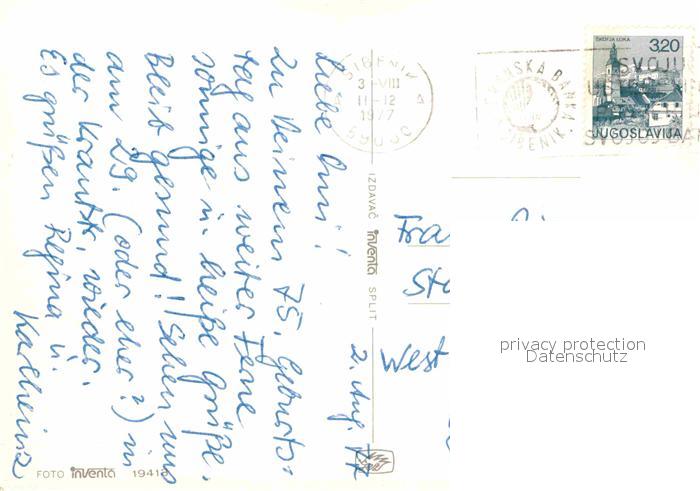 Liebe Omi!
Zu Deinem 75. Geburts-
tag aus weiter Ferne
sonnige u. heiße Grüße.
Bleib gesund! Sehen uns
am 29. (oder eher?) in
der Krautstr. wieder.
Es grüßen Regina u.
Karlheinz
2. Aug. 77
FOTO inventa 19418
IZDAVAČ inventa SPLIT
ŠIBENIK
3-VIII
11-12
1977
59000
BANKA
ŠIBENIK
SVOJU
SVOJOJ
ŠKOFJA LOKA
3,20
JUGOSLAVIJA
Fra
St
West
privacy protection
Datenschutz